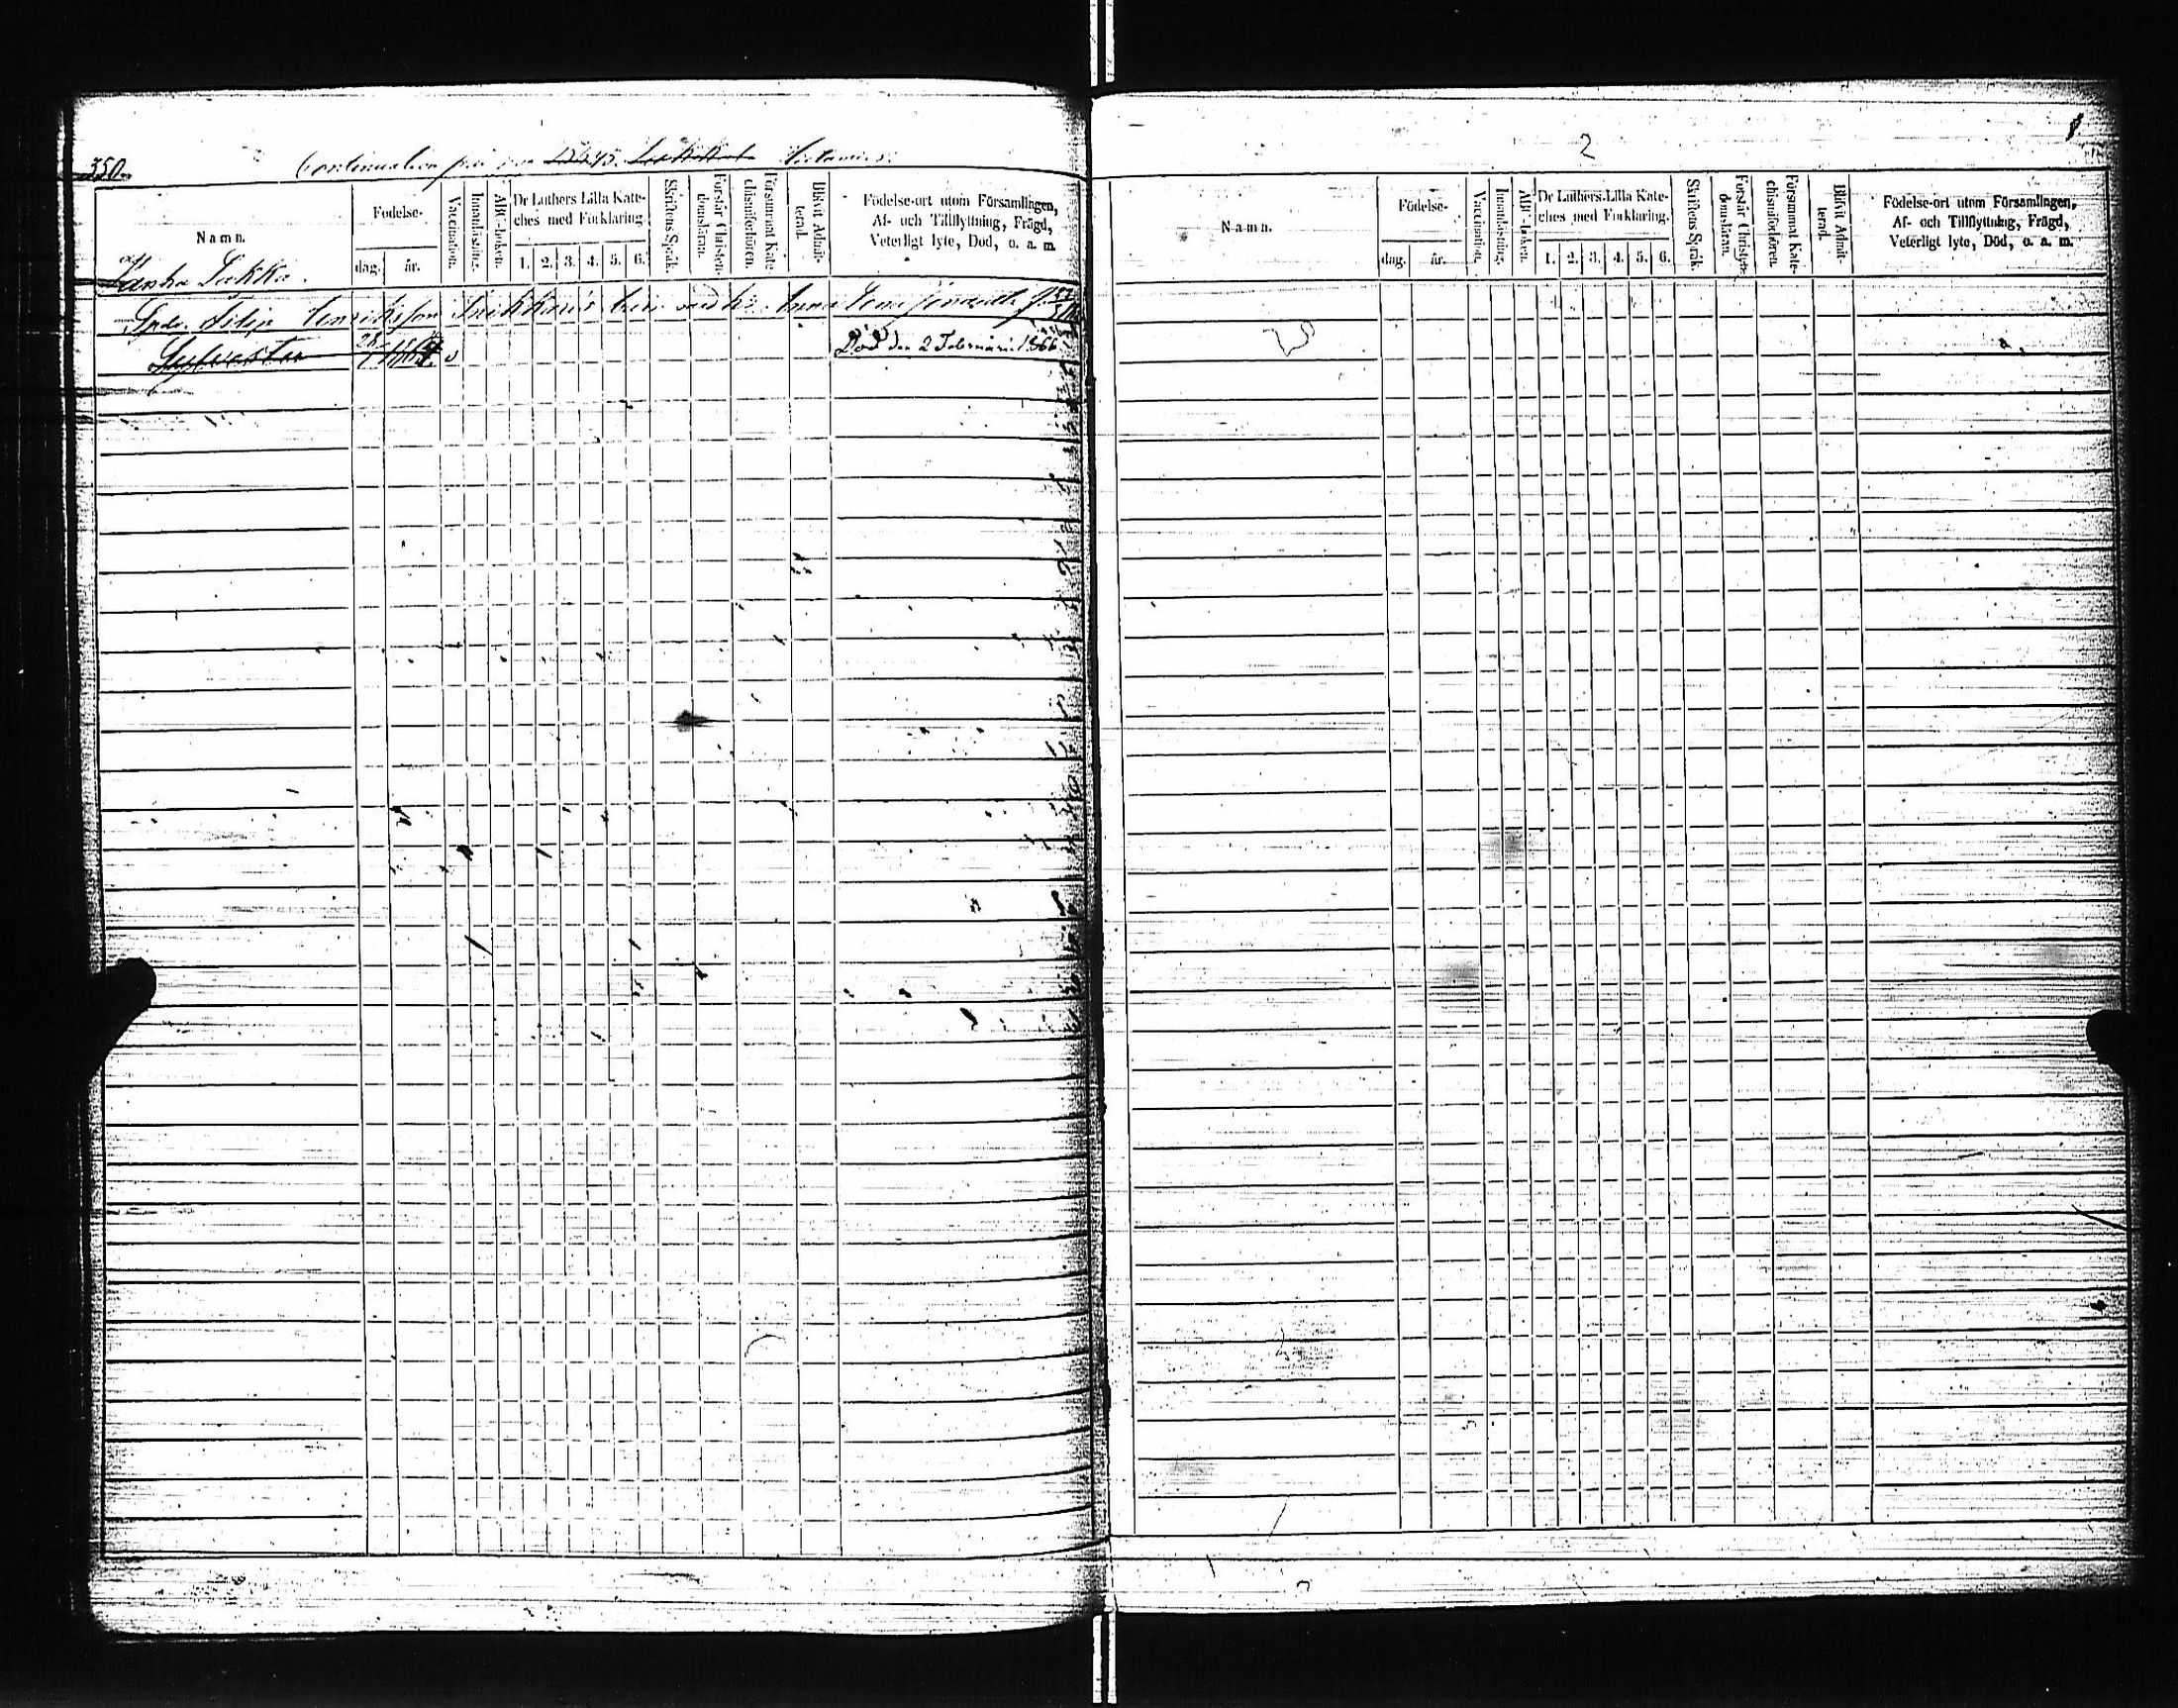 350.
Continuation från
Namn.
Födelse-
dag.
år.
Vaccination.
Innanläsning.
ABC-boken.
Dr Luthers Lilla Kate-
ches med Förklaring.
1. 2. 3. 4. 5. 6.
Skriftens Språk.
Förstår Christen-
domsläran.
Försummat Kate-
chismiförhören.
Blifvit Admit-
terad.
Födelse-ort utom Församlingen,
Af- och Tillflyttning, Frägd,
Veterligt lyte, Död, o. a. m.
Filip Henriksson
Sylvester
Död den 2 Februari 1866
2
Namn.
Födelse-
dag.
år.
Vaccination.
Innanläsning.
ABC-boken.
Dr Luthers Lilla Kate-
ches med Förklaring.
1. 2. 3. 4. 5. 6.
Skriftens Språk.
Förstår Christen-
domsläran.
Försummat Kate-
chismiförhören.
Blifvit Admit-
terad.
Födelse-ort utom Församlingen,
Af- och Tillflyttning, Frägd,
Veterligt lyte, Död, o. a. m.